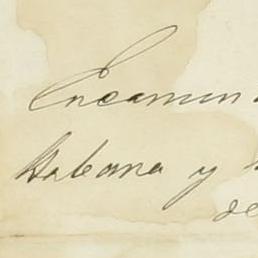 Encamin
Habana y
de